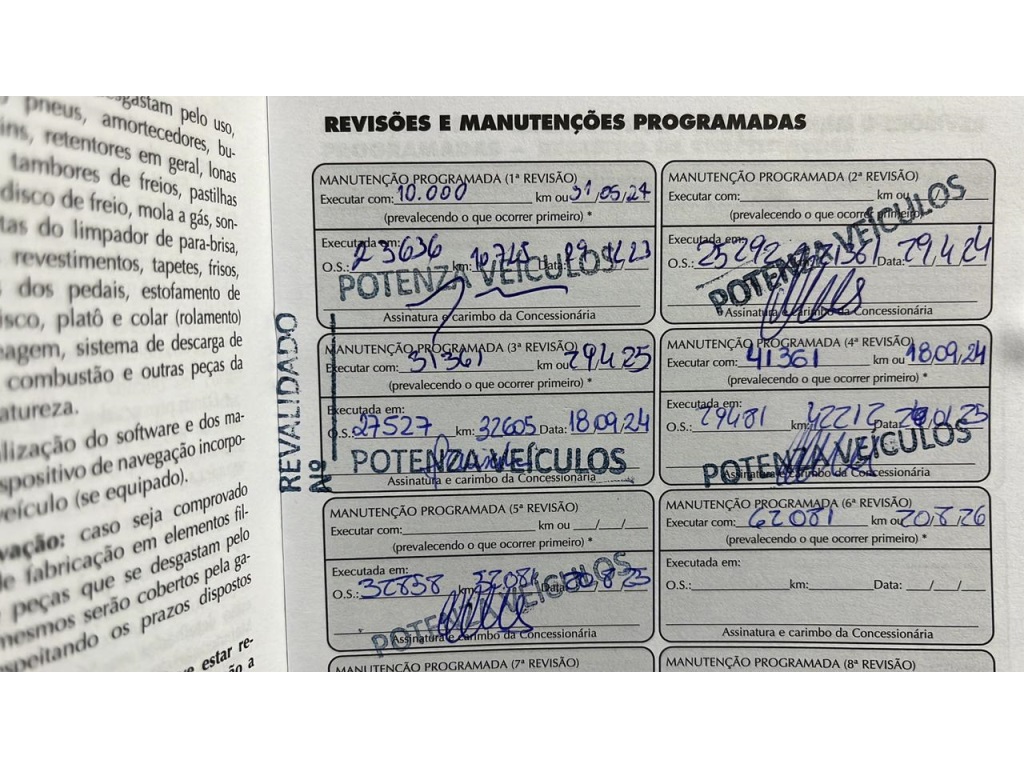 sgastam pelo uso,
pneus, amortecedores, bu-
ins, retentores em geral, lonas
tambores de freios, pastilhas
disco de freio, mola a gás, son-
tas do limpador de para-brisa,
revestimentos, tapetes, frisos,
dos pedais, estofamento de
isco, platô e colar (rolamento)
eagem, sistema de descarga de
combustão e outras peças da
atureza.
lização do software e dos ma-
spositivo de navegação incorpo-
veículo (se equipado).
vação: caso seja comprovado
de fabricação em elementos fil-
peças que se desgastam pelo
mesmos serão cobertos pela ga-
speitando os prazos dispostos
e estar re-
ão a
REVISÕES E MANUTENÇÕES PROGRAMADAS
MANUTENÇÃO PROGRAMADA (1ª REVISÃO)
Executar com: 10.000 km ou 31/05/24
(prevalecendo o que ocorrer primeiro) *
Executada em:
O.S.: 23636 km: 10.745 Data:
POTENZA VEÍCULOS
Assinatura e carimbo da Concessionária
MANUTENÇÃO PROGRAMADA (2ª REVISÃO)
Executar com: km ou
(prevalecendo o que ocorrer primeiro) *
Executada em:
O.S.: 25292 21361 Data: 29.4.24
POTENZA VEÍCULOS
Assinatura e carimbo da Concessionária
REVALIDADO
Nº
MANUTENÇÃO PROGRAMADA (3ª REVISÃO)
Executar com: 31361 km ou 29.4.25
(prevalecendo o que ocorrer primeiro) *
Executada em:
O.S.: 27527 km: 32605 Data: 18.09.24
POTENZA VEÍCULOS
Assinatura e carimbo da Concessionária
MANUTENÇÃO PROGRAMADA (4ª REVISÃO)
Executar com: 41361 km ou 18.09.24
(prevalecendo o que ocorrer primeiro) *
Executada em:
O.S.: 29481 km: 42212 Data:
POTENZA VEÍCULOS
Assinatura e carimbo da Concessionária
MANUTENÇÃO PROGRAMADA (5ª REVISÃO)
Executar com: km ou / /
(prevalecendo o que ocorrer primeiro) *
Executada em:
O.S.: 32858 km: 52081 Data: 20.8.25
POTENZA VEÍCULOS
Assinatura e carimbo da Concessionária
MANUTENÇÃO PROGRAMADA (6ª REVISÃO)
Executar com: 62081 km ou 20.8.26
(prevalecendo o que ocorrer primeiro) *
Executada em:
O.S.: km: Data: / /
Assinatura e carimbo da Concessionária
MANUTENÇÃO PROGRAMADA (7ª REVISÃO)
MANUTENÇÃO PROGRAMADA (8ª REVISÃO)